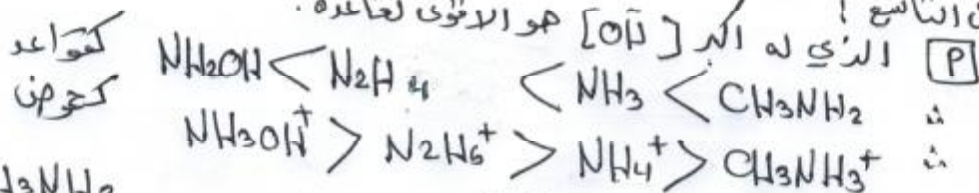 التاسع !
[P] الذي له أكبر [OH] هو الاقوى كقاعدة .
كقواعد NH2OH < N2H4 < NH3 < CH3NH2
كحوض NH3OH+ > N2H5+ > NH4+ > CH3NH3+
H3NH2